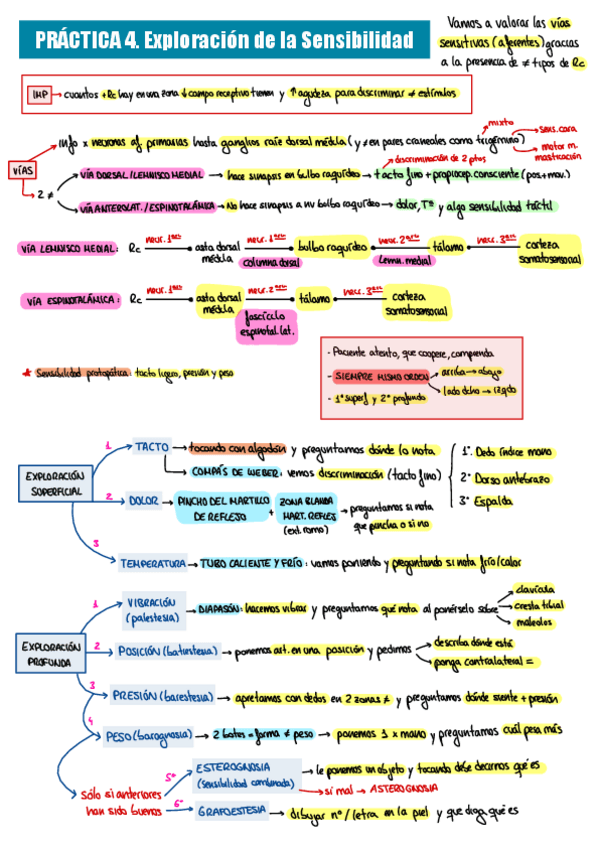 PRÁCTICA 4. Exploración de la Sensibilidad
Vamos a valorar las vías
sensitivas (aferentes) gracias
a la presencia de ≠ tipos de Rc
IMP → cuantos +Rc hay en una zona ↓ campo receptivo tienen y ↑ agudeza para discriminar ≠ estímulos
VÍAS
Info x neuronas af. primarias hasta ganglios raíz dorsal médula (y ≠ en pares craneales como trigémino)
mixto
sens. cara
motor m.
masticación
2 ≠
VÍA DORSAL / LEMNISCO MEDIAL → hace sinapsis en bulbo raquídeo → tacto fino + propiocep. consciente (pos + mov.)
discriminación de 2 ptos
VÍA ANTEROLAT. / ESPINOTALÁMICA → No hace sinapsis a nv bulbo raquídeo → dolor, Tª y algo sensibilidad táctil
VÍA LEMNISCO MEDIAL: Rc neur. 1aria asta dorsal médula neur. 1aria bulbo raquídeo neur. 2aria tálamo neur. 3aria corteza somatosensorial
columna dorsal
Lemn. medial
VÍA ESPINOTALÁMICA: Rc neur. 1aria asta dorsal médula neur. 2aria tálamo neur. 3aria corteza somatosensorial
fascículo
espinotal. lat.
* Sensibilidad protopática: tacto ligero, presión y peso
- Paciente atento, que coopere, comprenda
- SIEMPRE MISMO ORDEN
arriba → abajo
lado dcho → izqdo
- 1º superf y 2º profundo
EXPLORACIÓN
SUPERFICIAL
1 TACTO → tocando con algodón y preguntamos dónde lo nota
COMPÁS DE WEBER: vemos discriminación (tacto fino)
1º. Dedo índice mano
2º Dorso antebrazo
3º Espalda
2 DOLOR → PINCHO DEL MARTILLO
DE REFLEJO
+
ZONA BLANDA
MART. REFLEJ
(ext. romo)
→ preguntamos si nota
que pincha o si no
3 TEMPERATURA → TUBO CALIENTE Y FRÍO: vamos poniendo y preguntando si nota frío/calor
EXPLORACIÓN
PROFUNDA
1 VIBRACIÓN
(palestesia)
→ DIAPASÓN: hacemos vibrar y preguntamos qué nota al ponérselo sobre
clavícula
cresta tibial
maléolos
2 POSICIÓN (batiestesia) → ponemos art. en una posición y pedimos
describa dónde está
ponga contralateral =
3 PRESIÓN (barestesia) → apretamos con dedos en 2 zonas ≠ y preguntamos dónde siente + presión
4 PESO (barognosia) → 2 botes = forma ≠ peso → ponemos 1 x mano y preguntamos cuál pesa más
Sólo si anteriores
han sido buenos
5º ESTEROGNOSIA
(sensibilidad combinada)
→ le ponemos un objeto y tocando debe decirnos qué es
si mal → ASTEROGNOSIA
6º GRAFOESTESIA → dibujar nº / letra en la piel y que diga qué es